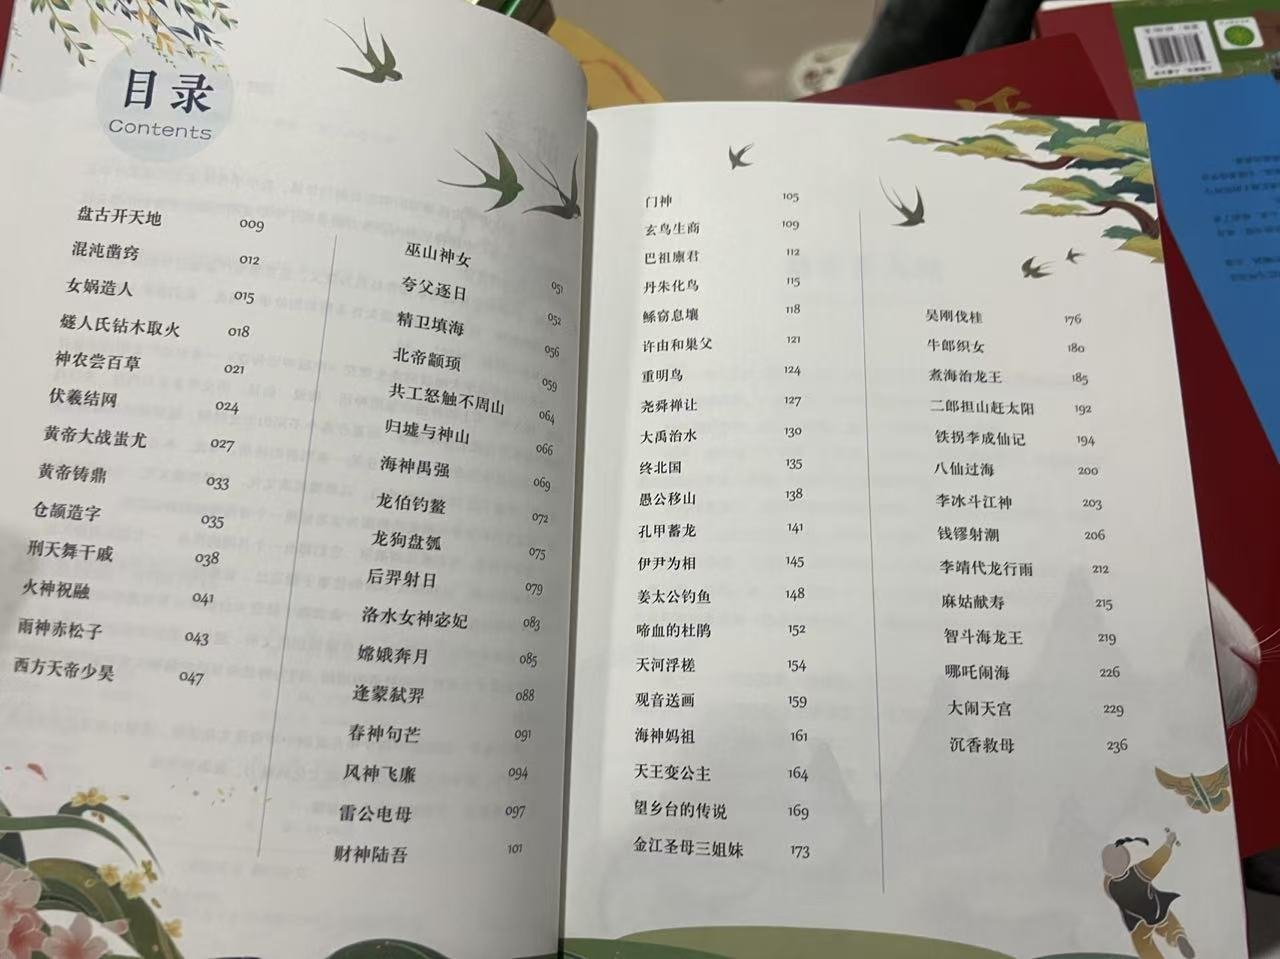 目录
Contents
盘古开天地 009
混沌凿窍 012
女娲造人 015
燧人氏钻木取火 018
神农尝百草 021
伏羲结网 024
黄帝大战蚩尤 027
黄帝铸鼎 033
仓颉造字 035
刑天舞干戚 038
火神祝融 041
雨神赤松子 043
西方天帝少昊 047
巫山神女 051
夸父逐日 052
精卫填海 056
北帝颛顼 059
共工怒触不周山 064
归墟与神山 066
海神禺强 069
龙伯钓鳌 072
龙狗盘瓠 075
后羿射日 079
洛水女神宓妃 083
嫦娥奔月 085
逢蒙弑羿 088
春神句芒 091
风神飞廉 094
雷公电母 097
财神陆吾 101
门神 105
玄鸟生商 109
巴祖廪君 112
丹朱化鸟 115
鲧窃息壤 118
许由和巢父 121
重明鸟 124
尧舜禅让 127
大禹治水 130
终北国 135
愚公移山 138
孔甲蓄龙 141
伊尹为相 145
姜太公钓鱼 148
啼血的杜鹃 152
天河浮槎 154
观音送画 159
海神妈祖 161
天王变公主 164
望乡台的传说 169
金江圣母三姐妹 173
吴刚伐桂 176
牛郎织女 180
煮海治龙王 185
二郎担山赶太阳 192
铁拐李成仙记 194
八仙过海 200
李冰斗江神 203
钱镠射潮 206
李靖代龙行雨 212
麻姑献寿 215
智斗海龙王 219
哪吒闹海 226
大闹天宫 229
沉香救母 236